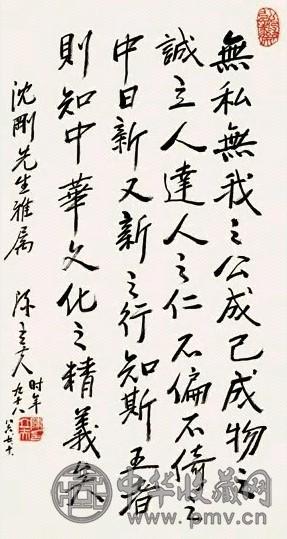 無私無我之公成己成物之
誠立人達人之仁不偏不倚之
中日新又新之行知斯五者
則知中華文化之精義矣
沈剛先生雅属
陈立夫
时年九十八
中华收藏网
www.pmv.cn